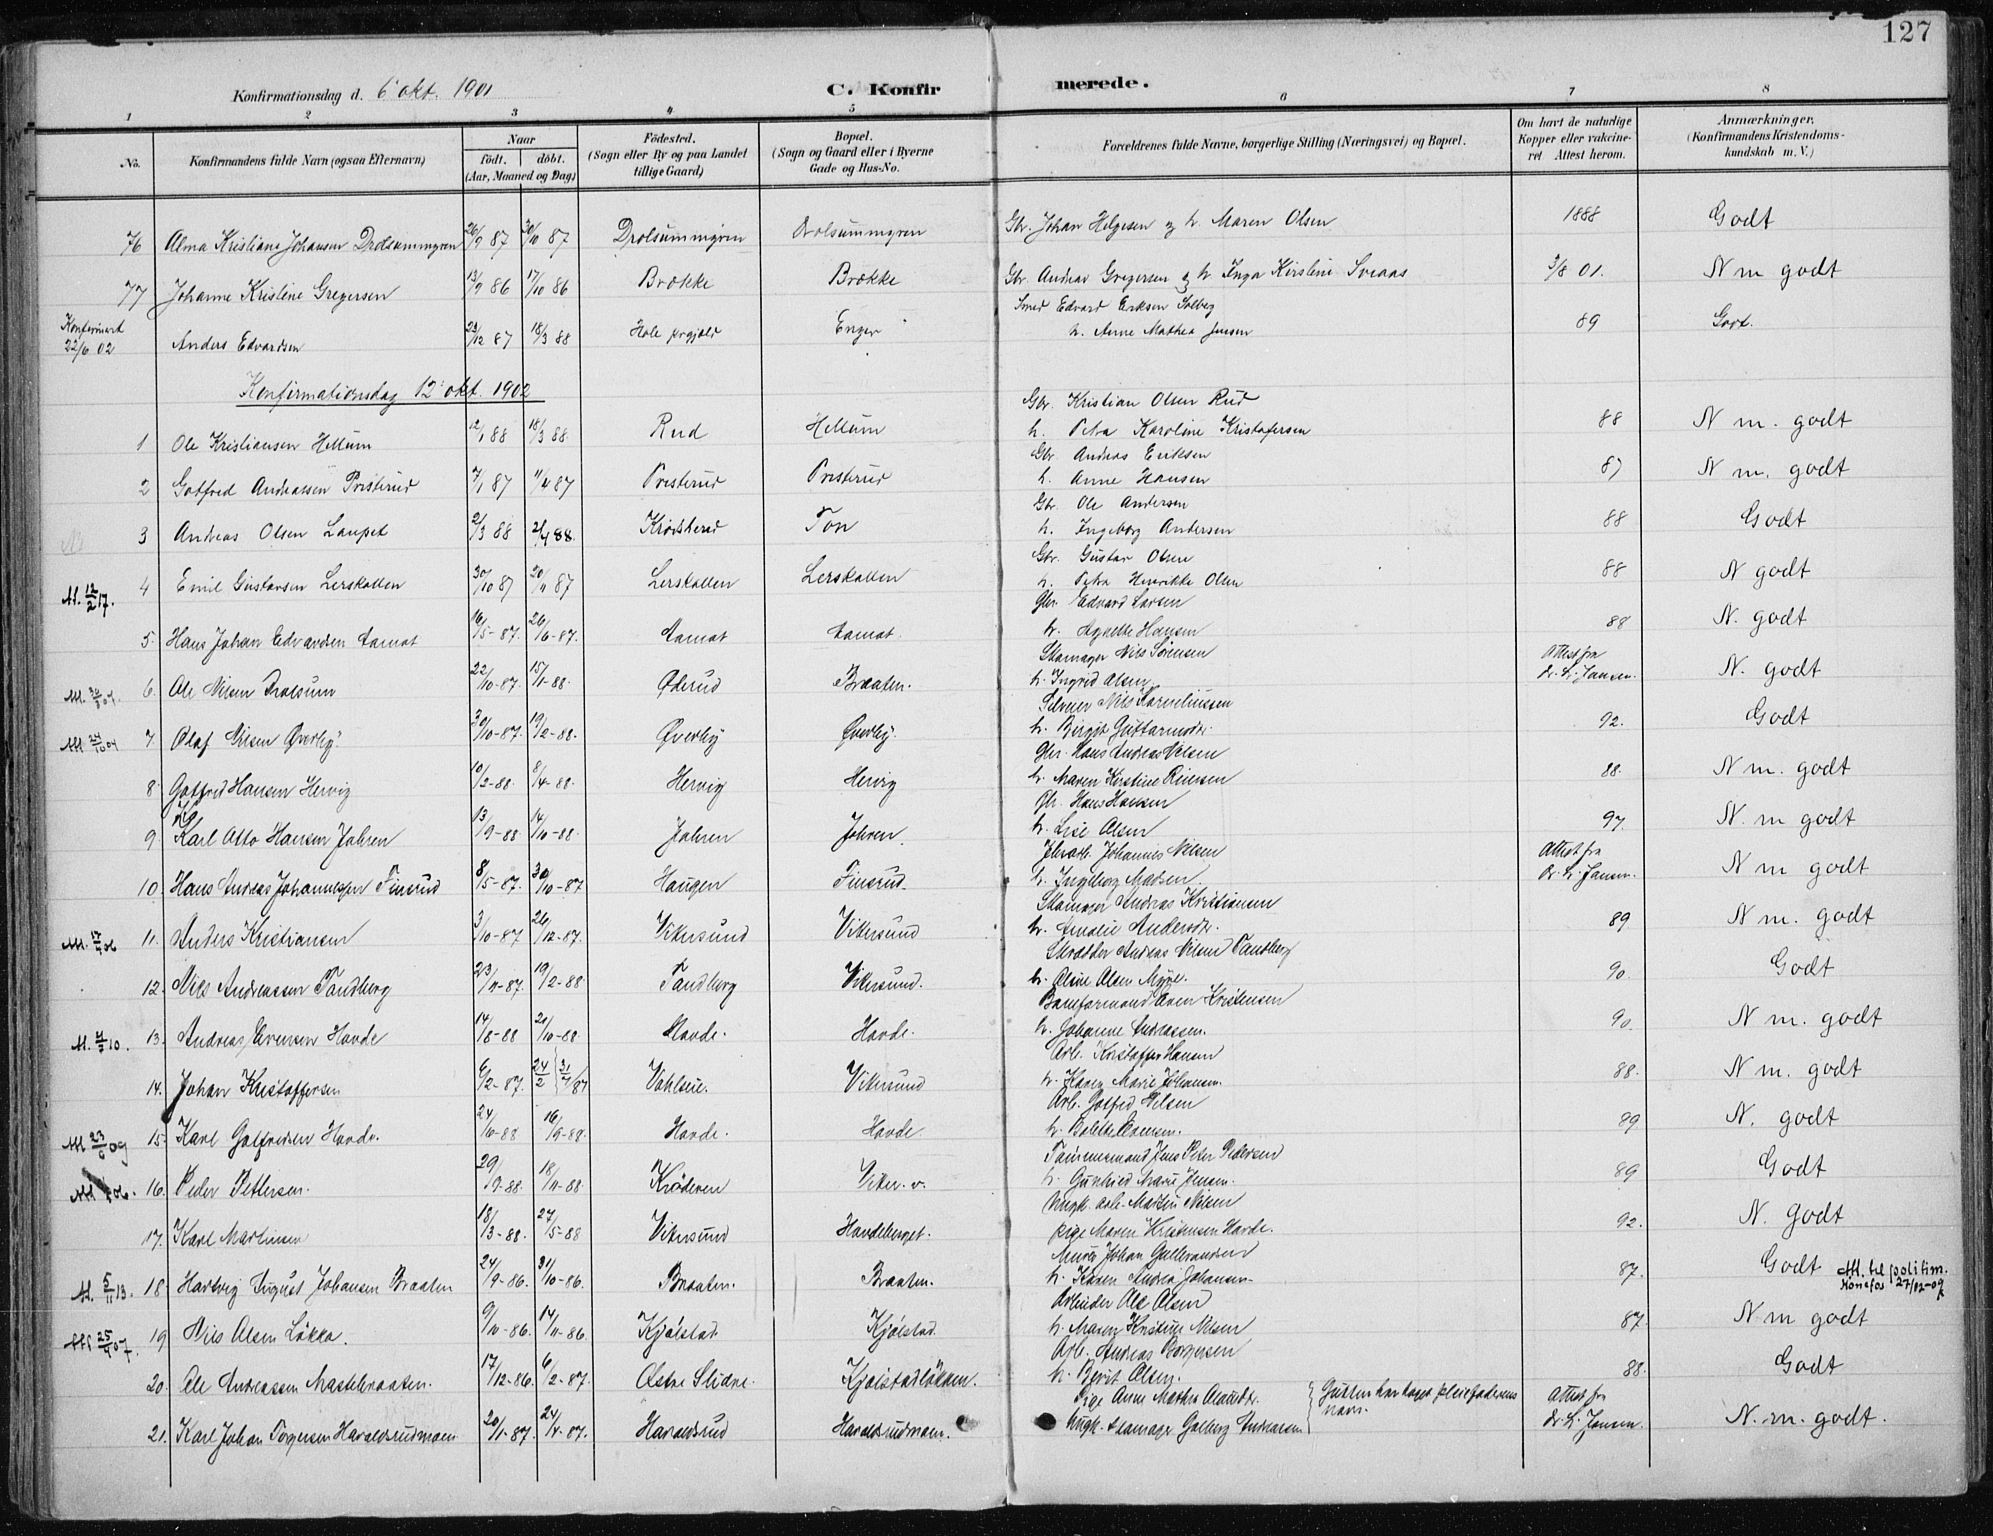 127
Konfirmationsdag d. 6 okt. 1901
C. Konfirmerede.
1 2 3 4 5 6 7 8
No.
Konfirmandens fulde Navn (ogsaa Efternavn)
Naar
født. døbt.
(Aar, Maaned og Dag)
Fødested.
(Sogn eller By og paa Landet
tillige Gaard)
Bopæl.
(Sogn og Gaard eller i Byerne
Gade og Hus-No.
Forældrenes fulde Navne, borgerlige Stilling (Næringsvei) og Bopæl.
Om havt de naturlige
Kopper eller vakcine-
ret Attest herom.
Anmærkninger.
(Konfirmandens Kristendoms-
kundskab m. V.)
76 Alma Kristiane Johansen Drolsummyren 26/9 87 30/10 87 Drolsummyren Drolsummyren Gbr. Johan Helgesen og h. Maren Olsen 1888 Godt
77 Johanne Kristine Gregersen 13/9 86 17/10 86 Brække Brække Gbr. Andreas Gregersen og h. Inga Kirstine Sveaas 3/8 01. N m godt
Konfirmert 22/6 02 Anders Edvardsen 23/12 87 18/3 88 Hole prgjæld Enger Smed Edvard Eriksen Solberg
h. Anne Mathea Jensen 89 Godt.
Konfirmationsdag 12' okt. 1902
1 Ole Kristiansen Hellum 12/1 88 18/3 88 Rud Hellum Gbr. Kristian Olsen Rud
h. Petra Karoline Kristofersen 88 N m. godt
2 Gotfred Andreassen Presterud 7/1 87 11/4 87 Presterud Presterud Gbr. Andreas Eriksen
h. Anne Hansen 87 N m. godt
3 Andreas Olsen Laupet 2/3 88 2/4 88. Krødsherad Ton Gbr. Ole Andersen
h. Ingeborg Andersen 88 Godt
M. 12/2 17. 4 Emil Gustavsen Lerskallen 30/10 87 20/11 87 Lerskallen Lerskallen Gbr. Gustav Olsen
h. Petra Henrikke Olsen 88 N godt
5. Hans Johan Edvardsen Aamot 16/5-87. 26/6-87. Aamot Aamot. Gbr. Edvard Larsen
h. Agnethe Hansen 88 N. godt
6. Ole Nilsen Drolsum 22/10-87. 15/1-88. Øderud Braaten. Skomager Nils Sørensen
h. Ingrid Olsen Attest fra
Dr. L. Jansen. N. godt
7 Olaf Nilsen Øverby. 30/10-87. 19/2-88. Øverby Øverby. Nils Korneliussen
h. Birgit Guttormsdr. 92. Godt
8. Gotfred Hansen Hervig 10/2-88. 8/4-88. Hervig Hervig Gbr. Hans Andreas Nilsen
h. Maren Kirstine Riversen 88. N m. godt
9. Karl Otto Hansen Jahren 13/9-88. 14/10-88. Jahren Jahren. Gbr. Hans Hansen
h. Lise Olsen 97. N. m godt
10. Hans Andreas Johannessen Finsrud 8/5-87. 30/10-87 Haugen Finsrud. Johannes Nilsen
h. Ingeborg Madsen. Attest fra
Dr. L. Jansen. N m godt
11. Anders Kristiansen 3/10-87 26/12-87. Vikersund Vikersund Skomager Andreas Kristiansen
h. Amalie Andersdr. 89 N m. godt
12. Nils Andreassen Tandberg 23/11-87. 19/2-88 Tandberg Vikersund. Skrædder Andreas Nilsen Tandberg
h. Oline Olsen Myre. 90. Godt
M. 10. 13. Andreas Evensen Hovde 14/8-88 21/10-88. Hovde. Hovde. Baneformand Even Kristensen
h. Johanne Andreassen. 90. N m. godt
14. Johan Kristoffersen 6/2-87. 24/2 31/7/87 Vikersund Arb. Kristoffer Hansen
h. Karen Marie Johansen. 88. N m. godt
M 23/ 09 15. Karl Gotfredsen Hovde. 24/6-88 16/9-88. Hovde. Hovde Arb. Gotfred Nilsen
h. Bolette Evensen. 89 N. godt
16. Peder Pettersen. 29/9-88. 18/11-88 Krøderen Viker. v. Jens Peter Pedersen
h. Gunhild Marie Jensen. 89 Godt
17. Karl Martinsen 18/3-88. 27/5-88 Vikersund Hovdeberget. Ungk. arb. Martin Nilsen
Pige Maren Kristensen Hovde. 92. N. Godt
M. 5/11 13. 18 Hartvig August Johansen Braaten 24/9-86. 31/10-86. Braaten. Braaten. Murer Johan Gulbrandsen
h. Karen Andrea Johansen 87. Godt Att. til politim.
Hønefos 27/02-09
25/ 07. 19 Nils Olsen Løkka. 9/10-86. 14/11-86. Kjølstad Kjølstad. Arbeider Ole Olsen
h. Maren Kristine Nilsen 87. N m godt
20. Ole Andreassen Mastebraaten. 17/12-86. 6/2-87. Østre Slidre. Kjølstadløkken. Arb. Andreas Børgersen
h. Berit Olsen. 88. Godt
21. Karl Johan Torgersen Haraldsrudmoen 20/1-87. 24/4-87. Haraldsrud Haraldsrudmoen. Pige Anne Mathea
Ungk. skomager { Gutten har taget pleiefaderens
navn. Attest fra
Dr. L. Jansen. N. m. godt.